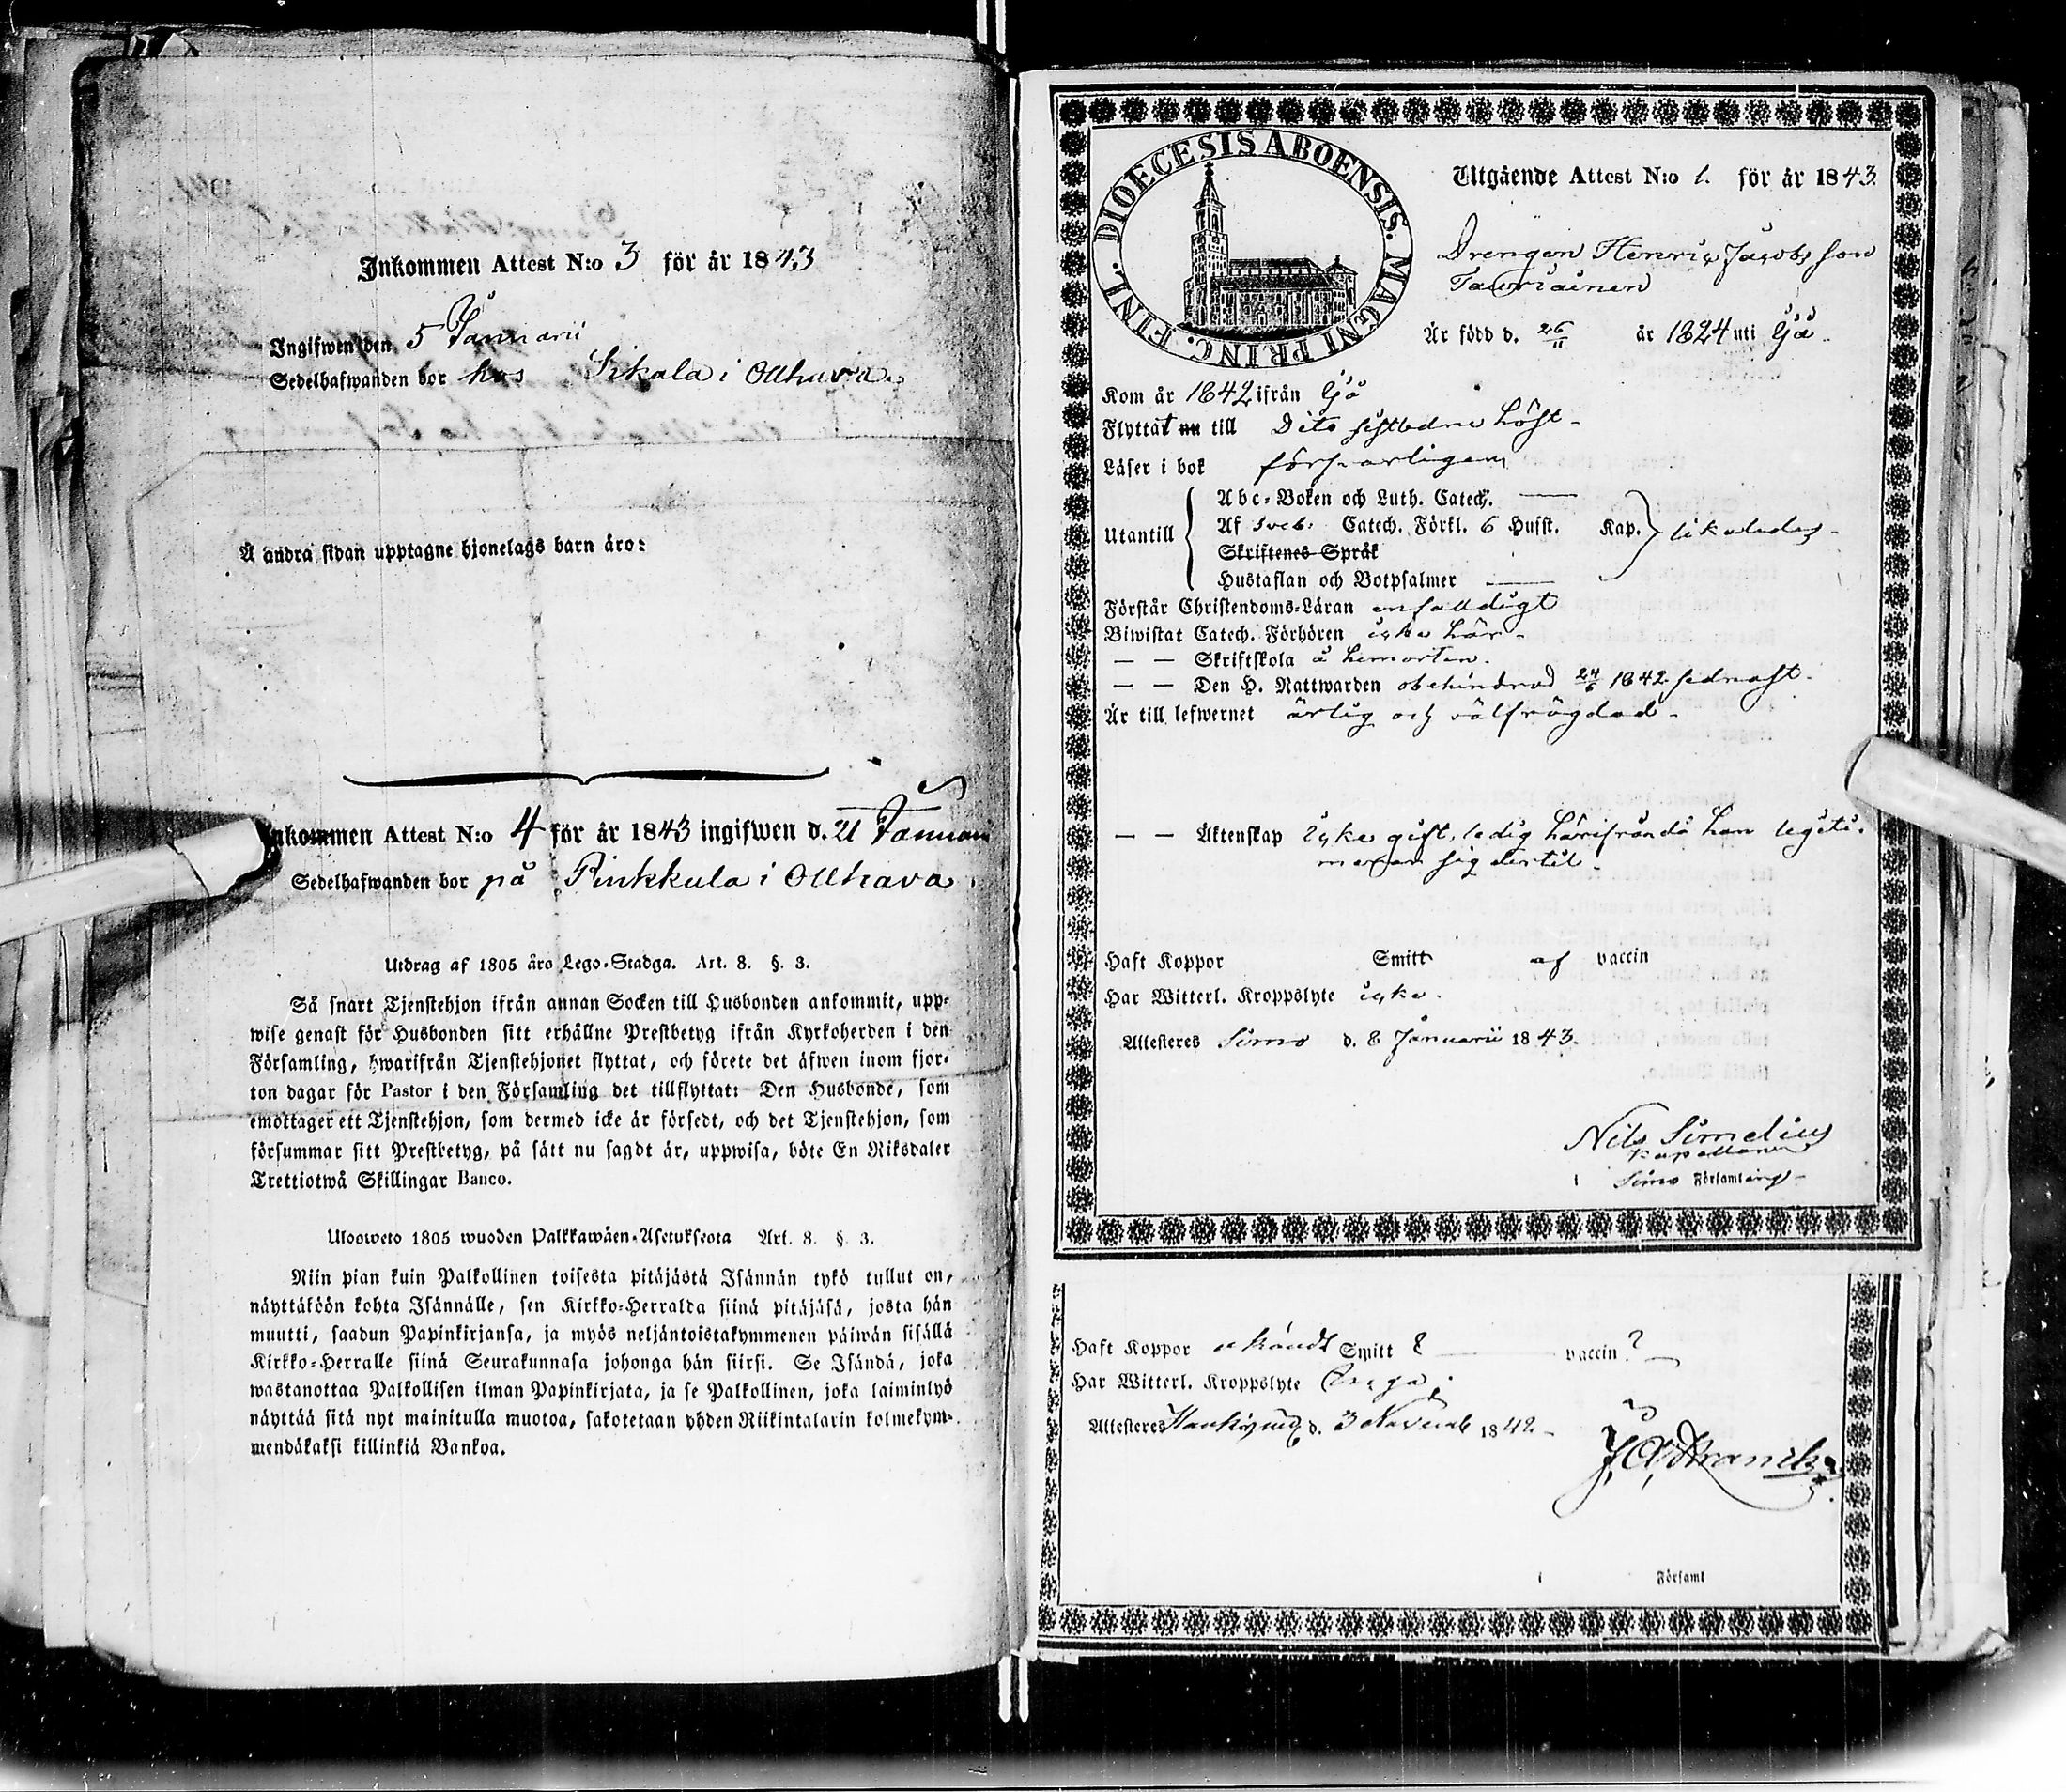 Inkommen Attest N:o 3 för år 1843
Ingifwen den 5 Januarii
Sedelhafwanden bor hos Sikala i Ollhava
Å andra sidan upptagne hjonelags barn äro:
Inkommen Attest N:o 4 för år 1843 ingifwen d. 21 Januari
Sedelhafwanden bor på Pinkkula i Ollhava
Utdrag af 1805 års Lego-Stadga. Art. 8. §. 3.
Så snart Tjenstehjon ifrån annan Socken till Husbonden ankommit, upp-
wise genast för Husbonden sitt erhållne Prestbetyg ifrån Kyrkoherden i den
Församling, hwarifrån Tjenstehjonet flyttat, och förete det äfwen inom fjor-
ton dagar för Pastor i den Församling det tillflyttat: Den Husbonde, som
emottager ett Tjenstehjon, som dermed icke är försedt, och det Tjenstehjon, som
försummar sitt Prestbetyg, på sätt nu sagdt är, uppwisa, böte En Riksdaler
Trettiotwå Skillingar Banco.
Uloosweto 1805 wuoden Palkkawäen-Asetuksesta Art. 8. §. 3.
Niin pian kuin Palkollinen toisesta pitäjästä Isännän tykö tullut on,
näyttäköön kohta Isännälle, sen Kirkko-Herralda siinä pitäjäsä, josta hän
muutti, saadun Papinkirjansa, ja myös neljäntoistakymmenen päiwän sisällä
Kirkko-Herralle siinä Seurakunnasa johonga hän siirsi. Se Isändä, joka
wastanottaa Palkollisen ilman Papinkirjata, ja se Palkollinen, joka laiminlyö
näyttää sitä nyt mainitulla muotoa, sakotetaan yhden Riikintalarin kolmekym-
mendäkaksi killinkiä Bankoa.
DIOECESIS ABOENSIS. MAGNI PRINC. FINL.
Utgående Attest N:o 1. för år 1843.
Drengen Henric Jacobsson
Tauriainen
Är född d. 26/11 år 1824 uti Ijå
Kom år 1842 ifrån Ijå
Flyttat nu till Dito sistledne höst
Läser i bok försvarligen
Abc-Boken och Luth. Catech.
Utantill Af Sveb. Catech. Förkl. 6 Hufst. Kap. likaledes
Skriftenes Språk
Hustaflan och Botpsalmer
Förstår Christendoms-Läran enfaldigt
Biwistat Catech. Förhören icke här
— — Skriftskola å hemorten.
— — Den H. Nattwarden obehindrad 24/6 1842 sednast.
Är till lefwernet ärlig och välfrägdad
— — Äktenskap icke gift, ledig härifrån då han legiti-
merar sig dertill.
Haft Koppor Smitt af vaccin
Har Witterl. Kroppslyte icke.
Attesteres Simo d. 8 Januarii 1843.
Nils Simelius
Kapellan
i Simo Församling
Haft Koppor okändt Smitt ? vaccin ?
Har Witterl. Kroppslyte
Attesteres d. 3 Novemb 1842
i Församl